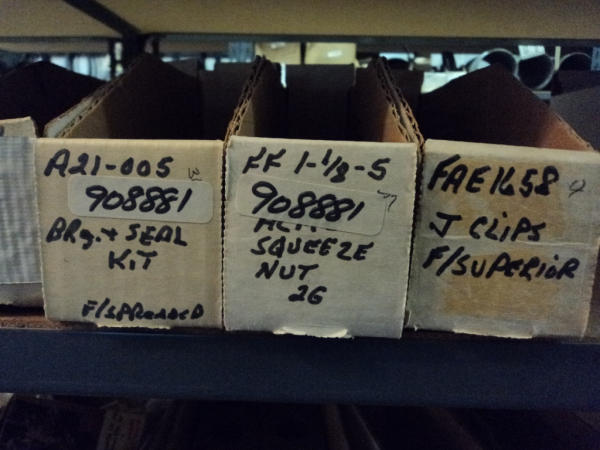 A21-005
908881
BRg. + SEAL
KIT
F/SPREADED
FF 1-1/8-5
908881
SQUEEZE
NUT
2G
FAE1658
J CLIPS
F/SUPERIOR